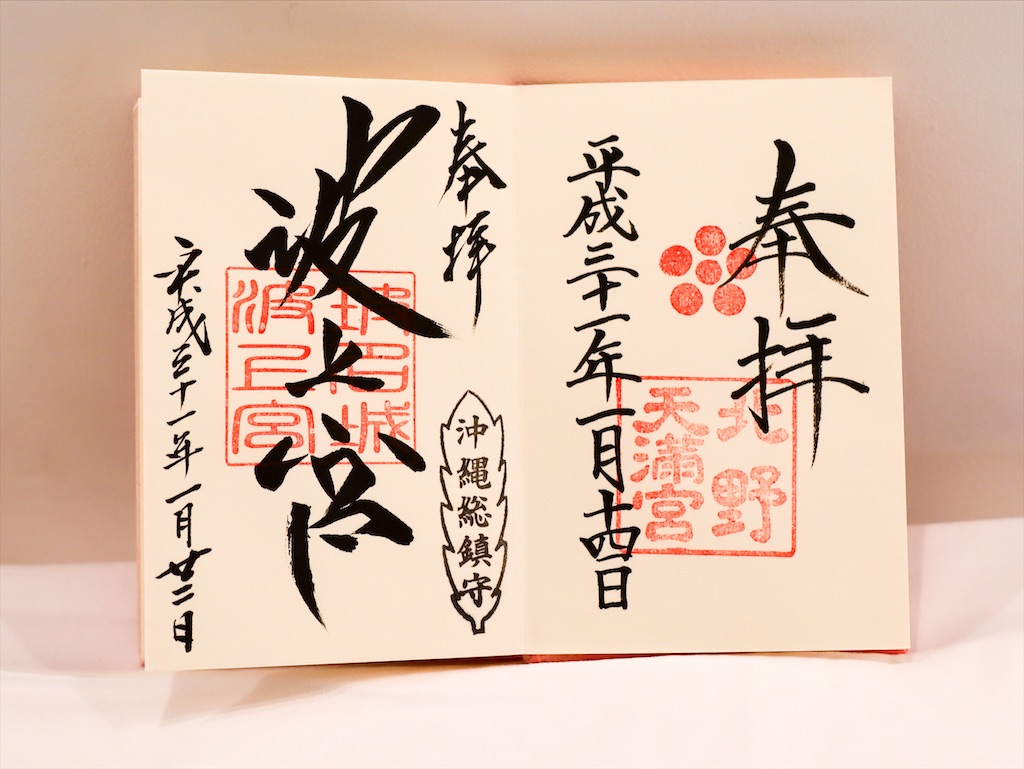 奉拝
北野
天満宮
平成三十一年一月十四日
奉拝
沖縄総鎮守
波上宮
玻名城
波上宮
平成三十一年一月廿二日